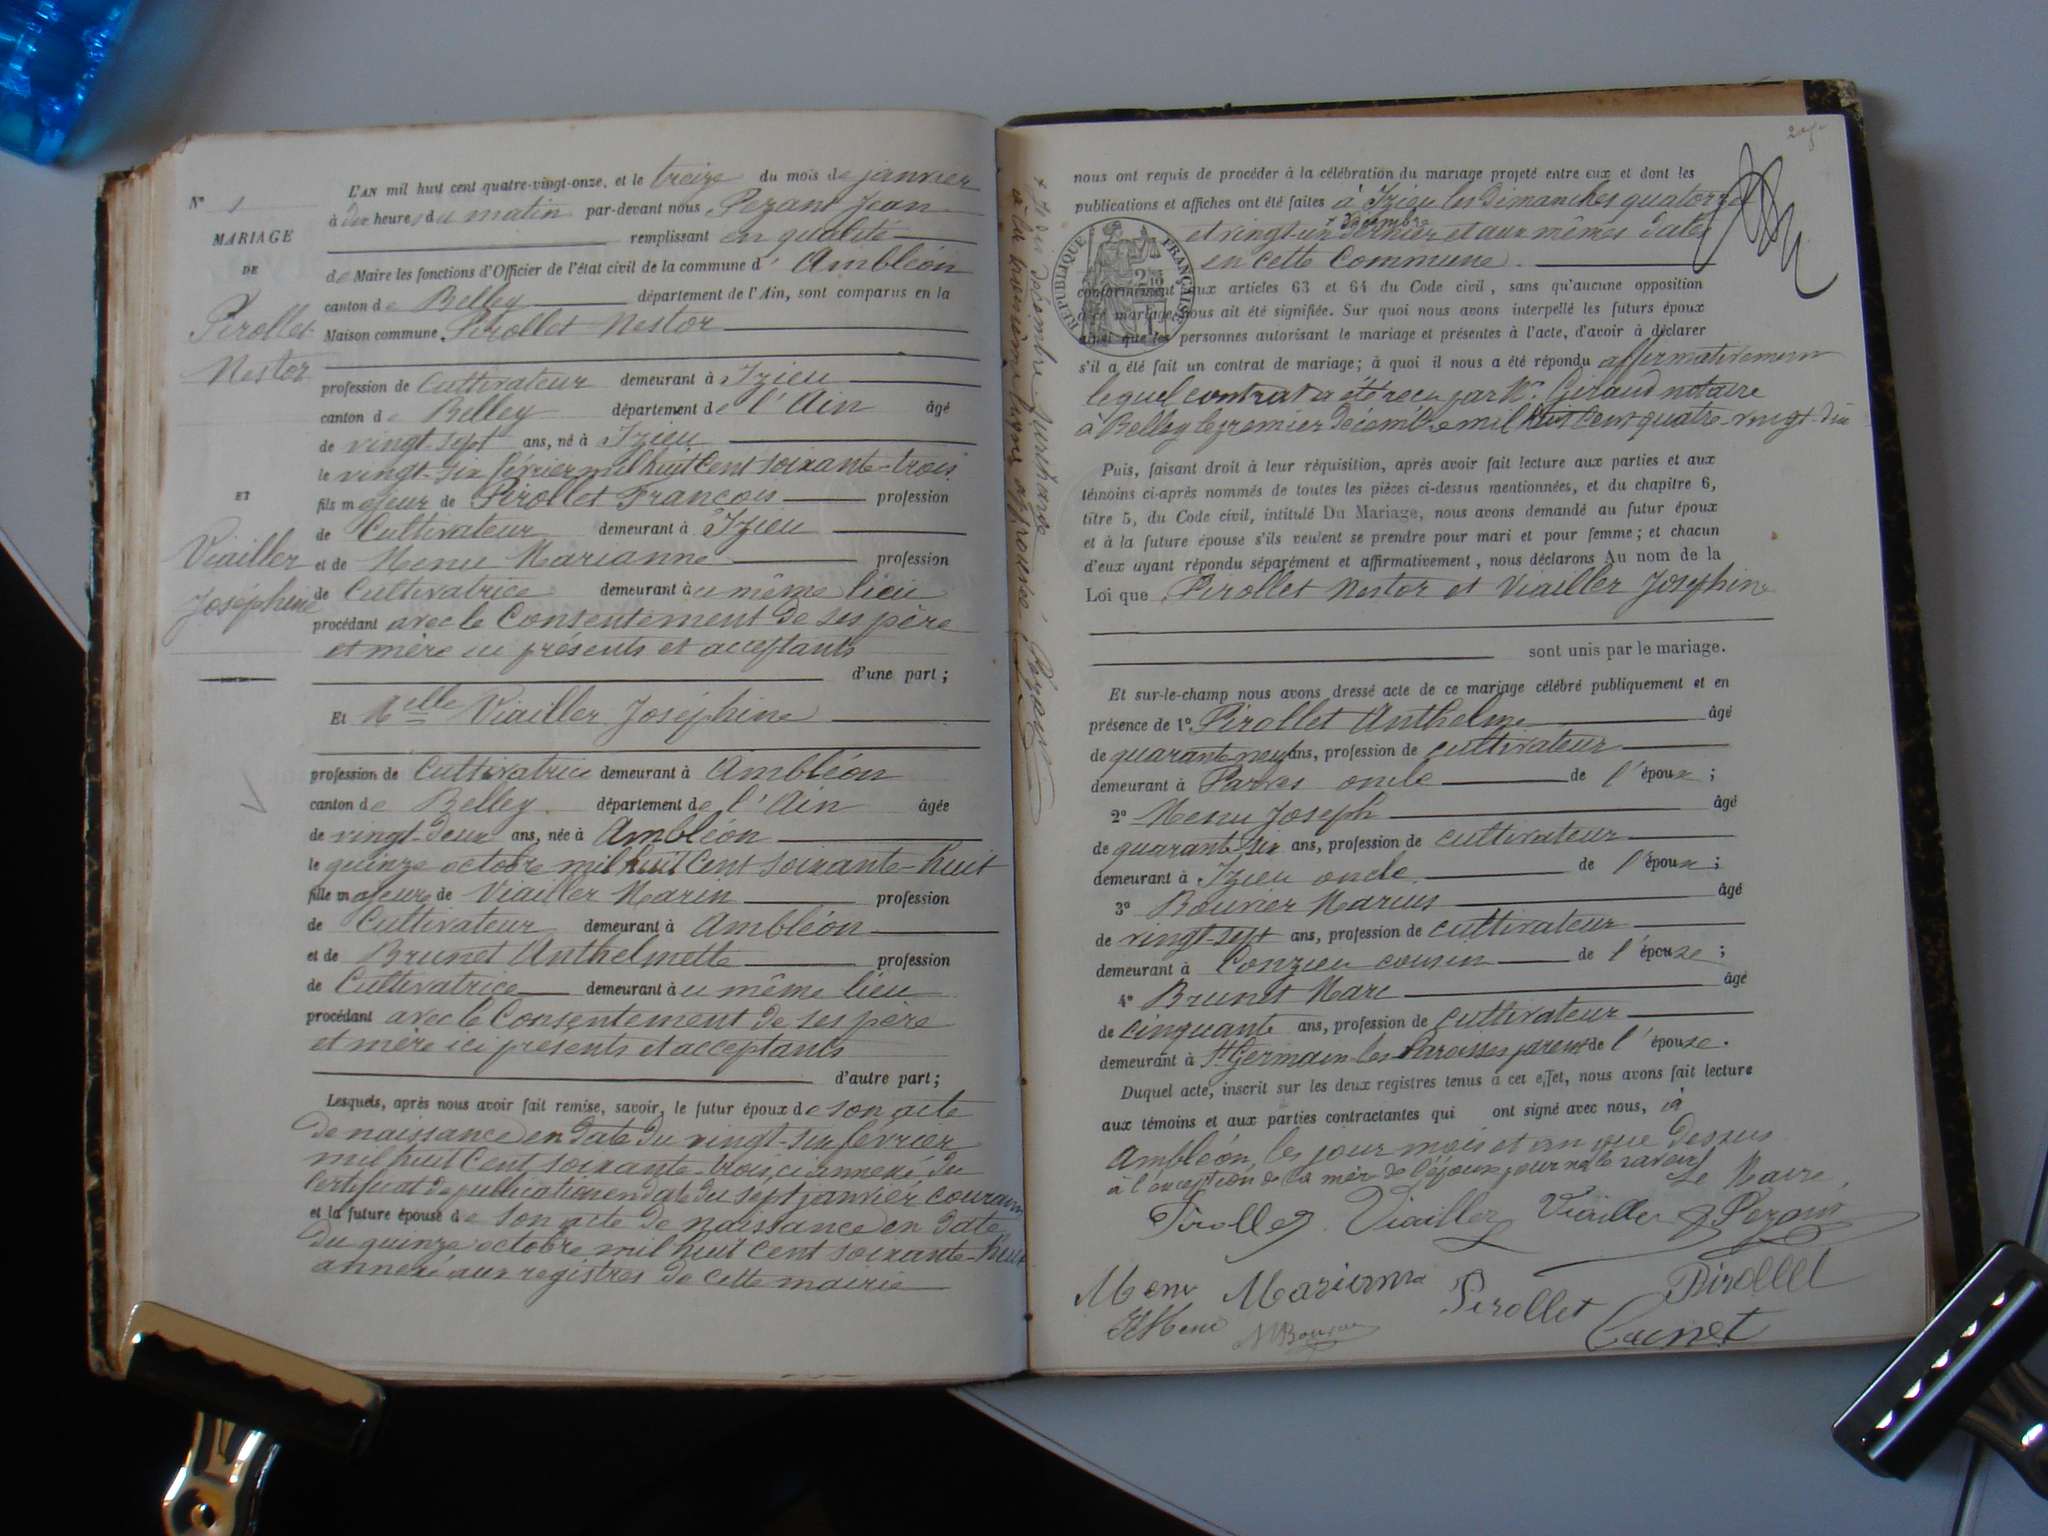 N° 1
MARIAGE
DE
Pirollet
Nestor
ET
Viailler
Joséphine
L'AN mil huit cent quatre-vingt-onze, et le treize du mois de janvier
à dix heures du matin par-devant nous Pezant Jean
remplissant en qualité
de Maire les fonctions d'Officier de l'état civil de la commune d' Ambléon
canton de Belley département de l'Ain, sont comparus en la
Maison commune Pirollet Nestor
profession de Cultivateur demeurant à Izieu
canton de Belley département de l'Ain âgé
de vingt-sept ans, né à Izieu
le vingt-six février mil huit cent soixante-trois
fils majeur de Pirollet François profession
de Cultivateur demeurant à Izieu
et de Menu Marianne profession
de Cultivatrice demeurant au même lieu
procédant avec le Consentement de ses père
et mère ici présents et acceptants
d'une part ;
Et Melle Viailler Joséphine
profession de Cultivatrice demeurant à Ambléon
canton de Belley département de l'Ain âgée
de vingt-deux ans, née à Ambléon
le quinze octobre mil huit cent soixante-huit
fille majeure de Viailler Marin profession
de Cultivateur demeurant à Ambléon
et de Brunet Anthelmette profession
de Cultivatrice demeurant au même lieu
procédant avec le Consentement de ses père
et mère ici présents et acceptants
d'autre part ;
Lesquels, après nous avoir fait remise, savoir, le futur époux de son acte
de naissance en date du vingt-six février
mil huit cent soixante-trois, ci annexé du
certificat de publication en date du sept janvier courant
et la future épouse de son acte de naissance en date
du quinze octobre mil huit cent soixante-huit
annexé aux registres de cette mairie
à la troisième ligne approuvé Pezant
nous ont requis de procéder à la célébration du mariage projeté entre eux et dont les
publications et affiches ont été faites à Izieu les dimanches quatorze
et vingt-un + décembre dernier et aux mêmes dates
en cette Commune
RÉPUBLIQUE FRANÇAISE
conformément aux articles 63 et 64 du Code civil, sans qu'aucune opposition
à ce mariage nous ait été signifiée. Sur quoi nous avons interpellé les futurs époux
ainsi que les personnes autorisant le mariage et présentes à l'acte, d'avoir à déclarer
s'il a été fait un contrat de mariage; à quoi il nous a été répondu affirmativement
lequel contrat a été recu par Me Giraud notaire
à Belley le premier décembre mil huit cent quatre-vingt-dix
Puis, faisant droit à leur réquisition, après avoir fait lecture aux parties et aux
témoins ci-après nommés de toutes les pièces ci-dessus mentionnées, et du chapitre 6,
titre 5, du Code civil, intitulé Du Mariage, nous avons demandé au futur époux
et à la future épouse s'ils veulent se prendre pour mari et pour femme ; et chacun
d'eux ayant répondu séparément et affirmativement, nous déclarons Au nom de la
Loi que Pirollet Nestor et Viailler Joséphine
sont unis par le mariage.
Et sur-le-champ nous avons dressé acte de ce mariage célébré publiquement et en
présence de 1° Pirollet Anthelme âgé
de quarante-neuf ans, profession de cultivateur
demeurant à Parves oncle de l'époux ;
2° Menu Joseph âgé
de quarante-six ans, profession de cultivateur
demeurant à Izieu oncle de l'époux ;
3° Bouvier Marius âgé
de vingt-sept ans, profession de cultivateur
demeurant à Conzieu cousin de l'épouse ;
4° Brunet Marc âgé
de cinquante ans, profession de cultivateur
demeurant à St Germain les Paroisses parent de l'épouse.
Duquel acte, inscrit sur les deux registres tenus à cet effet, nous avons fait lecture
aux témoins et aux parties contractantes qui ont signé avec nous, à
Ambléon, les jour mois et an que dessus
à l'exception de la mère de l'épouse pour ne le savoir
Le Maire,
Pirollet Viailler Viailler J Pezant
Menu Marianne Pirollet Pirollet
J Menu M Bouvier Brunet